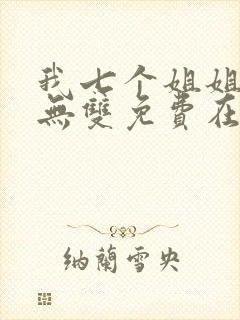 我七个姐姐
無雙免費在
纳蘭雪央